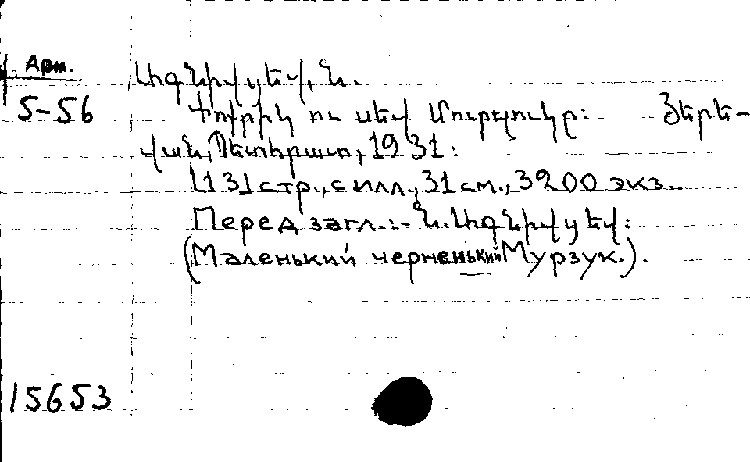 Арм.
5-56
Ագնիվցեվ, Ն.
Փոքրիկ ու սեվ Մուրզուկը: Յերե-
վան, Պետհրատ, 1931:
[13] стр., с илл., 31 см., 3200 экз.
Перед загл.:- Ն. Ագնիվցեվ:
(Маленький черненький Мурзук.).
15653